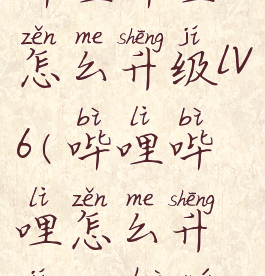 zěn me shēng jí
怎么升级lV
bì lì bì
6(哔哩哔
lì zěn me shēng
哩怎么升